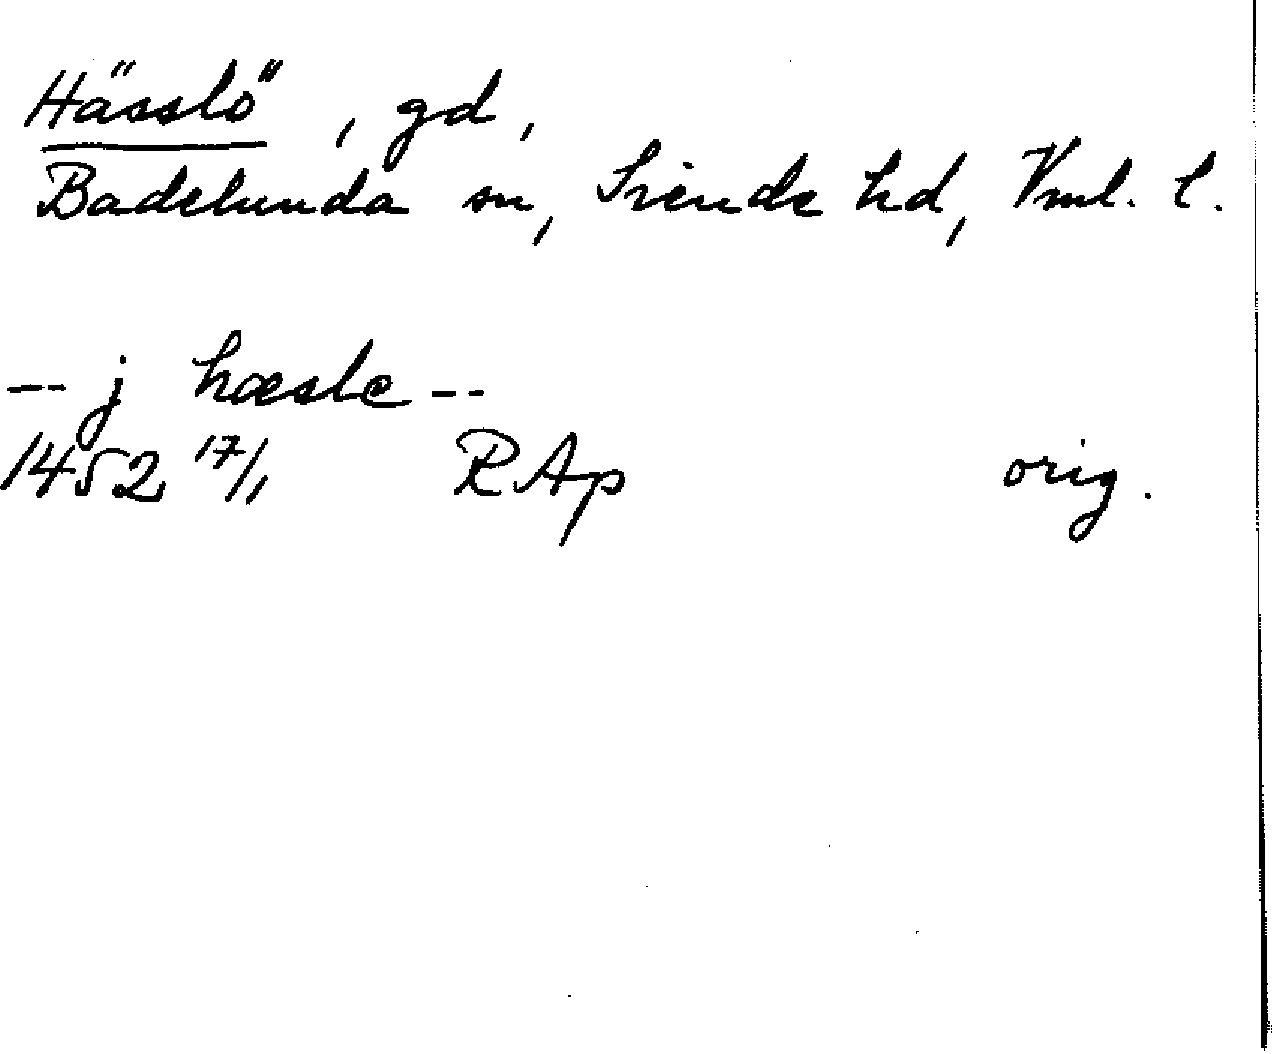 Hässlö, gd,
Badelunda sn, Siende hd, Vml. l.
-- j hæsle --
1452 17/1 RAp orig.